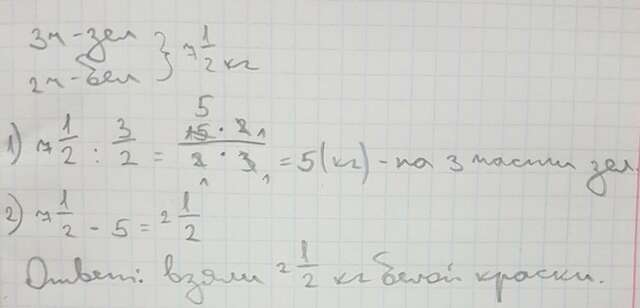 3ч - зел
2ч - бел } 7 1/2 кг
1) 7 1/2 : 3/2 = 15 · 2 / 2 · 3 = 5 (кг) - на 3 части зел.
5 1 1 1
2) 7 1/2 - 5 = 2 1/2
Ответ: взяли 2 1/2 кг белой краски.